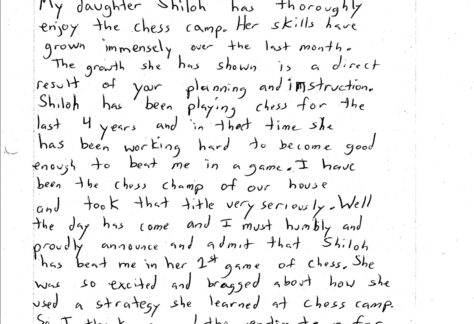 My daughter Shiloh has thoroughly
enjoy the chess camp. Her skills have
grown immensely over the last month.
The growth she has shown is a direct
result of your planning and instruction.
Shiloh has been playing chess for the
last 4 years and in that time she
has been working hard to become good
enough to beat me in a game. I have
been the chess champ of our house
and took that title very seriously. Well
the day has come and I must humbly and
proudly announce and admit that Shiloh
has beat me in her 1st game of chess. She
was so excited and bragged about how she
used a strategy she learned at chess camp.
So I